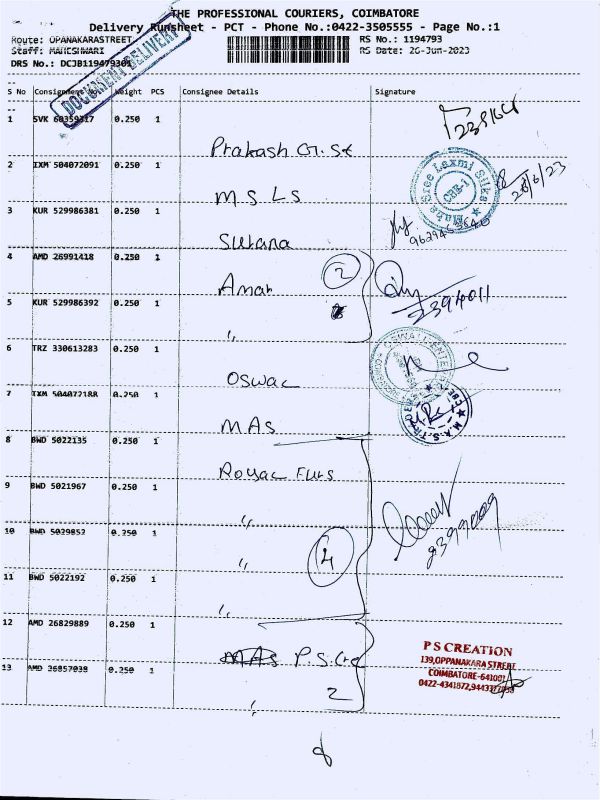 THE PROFESSIONAL COURIERS, COIMBATORE
Delivery Runsheet - PCT - Phone No.:0422-3505555 - Page No.:1
Route: OPANAKARASTREET RS No.: 1194793
Staff: MAHESHWARI RS Date: 26-Jun-2023
DRS No.: DCJB119479301
DOCUMENT DELIVERY
S No Consignment No. Weight PCS Consignee Details Signature
1 SVK 60359317 0.250 1 Prakash G. St
2 IXM 504072091 0.250 1 M S L S
Mahasree Laxmi Silks CBE-1
28/6/23
3 KUR 529986381 0.250 1 Sultana
4 AMD 26991418 0.250 1 Aman 2
2394011
5 KUR 529986392 0.250 1 "
6 TRZ 330613283 0.250 1 Oswal
7 IXM 504072188 0.250 1 MAS
M.A.S.
8 BWD 5022135 0.250 1 Royal Furs
9 BWD 5021967 0.250 1 "
10 BWD 5029852 0.250 1 " 4
11 BWD 5022192 0.250 1 "
12 AMD 26829889 0.250 1 MAS P S
13 AMD 26857038 0.250 1 " 2
P S CREATION
139,OPPANAKARA STREET
COIMBATORE-641001
0422-4341872,